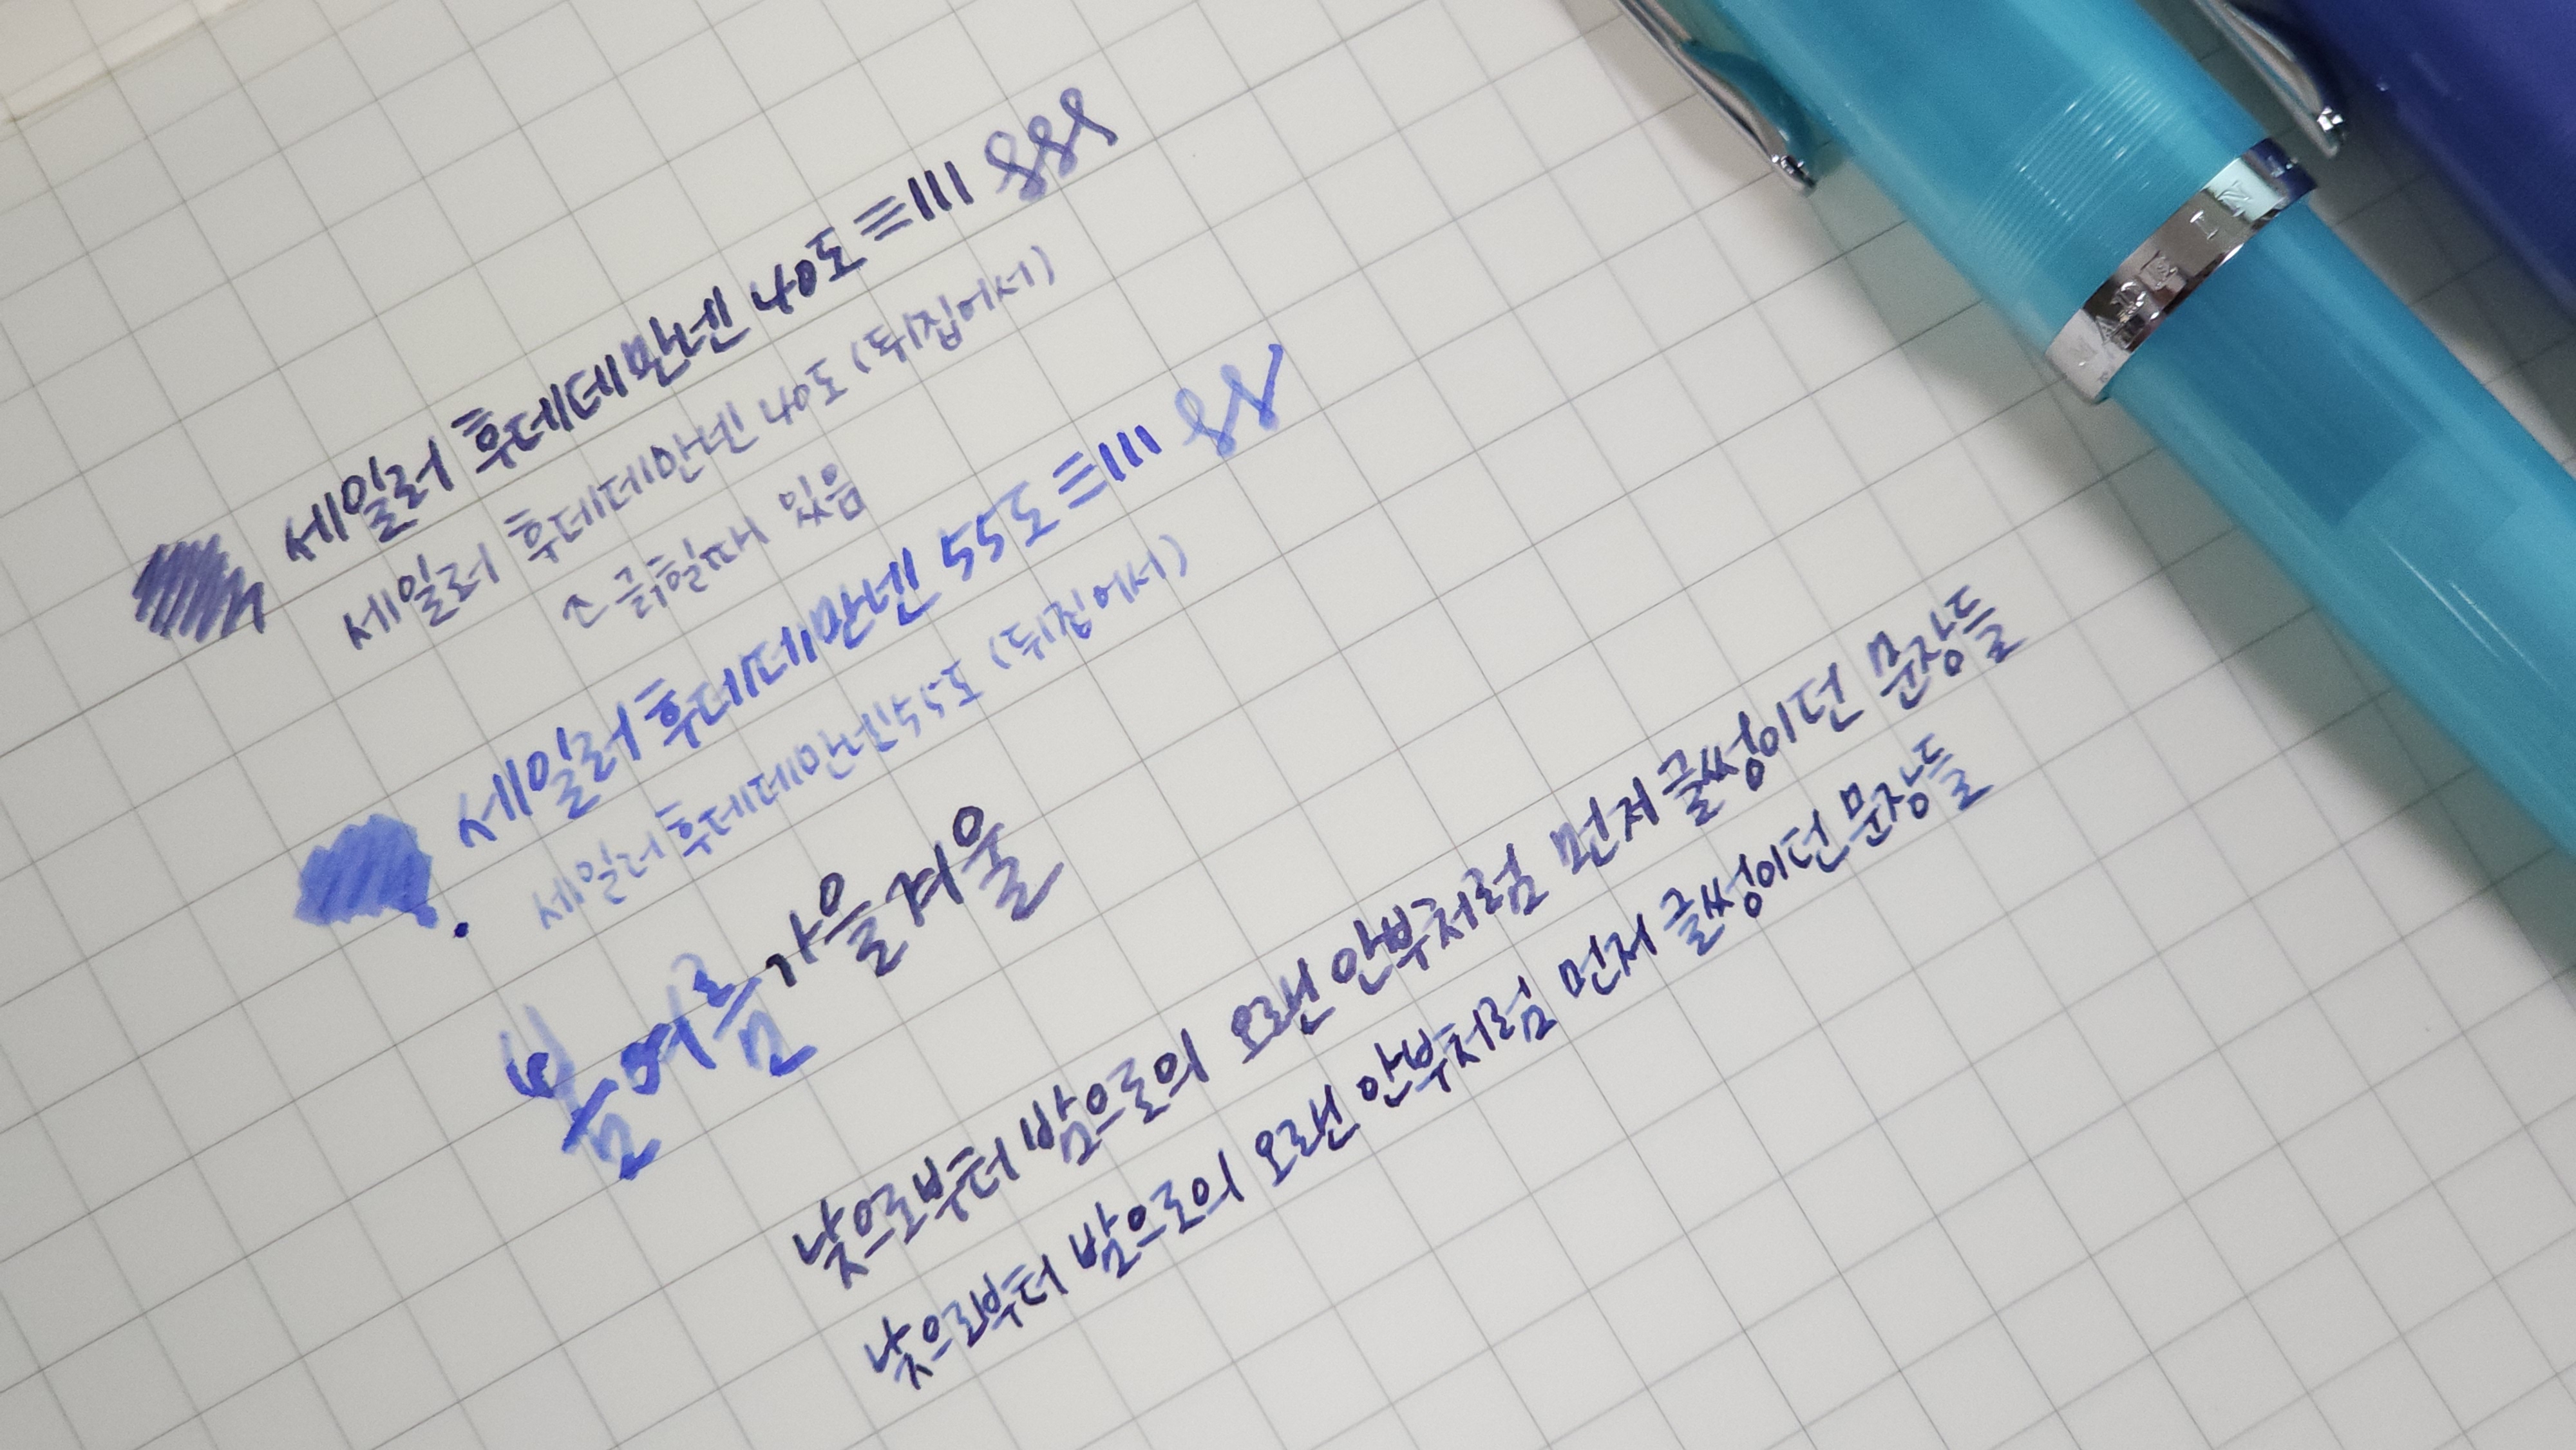 세일러 후데데만넨 40도
세일러 후데데만넨 40도 (뒤집어서)
긁힐때 있음
세일러 후데데만넨 55도
세일러 후데데만넨 55도 (뒤집어서)
봄여름가을겨울
낮으로부터 밤으로의 오랜 안부처럼 먼저 글썽이던 문장들
낮으로부터 밤으로의 오랜 안부처럼 먼저 글썽이던 문장들